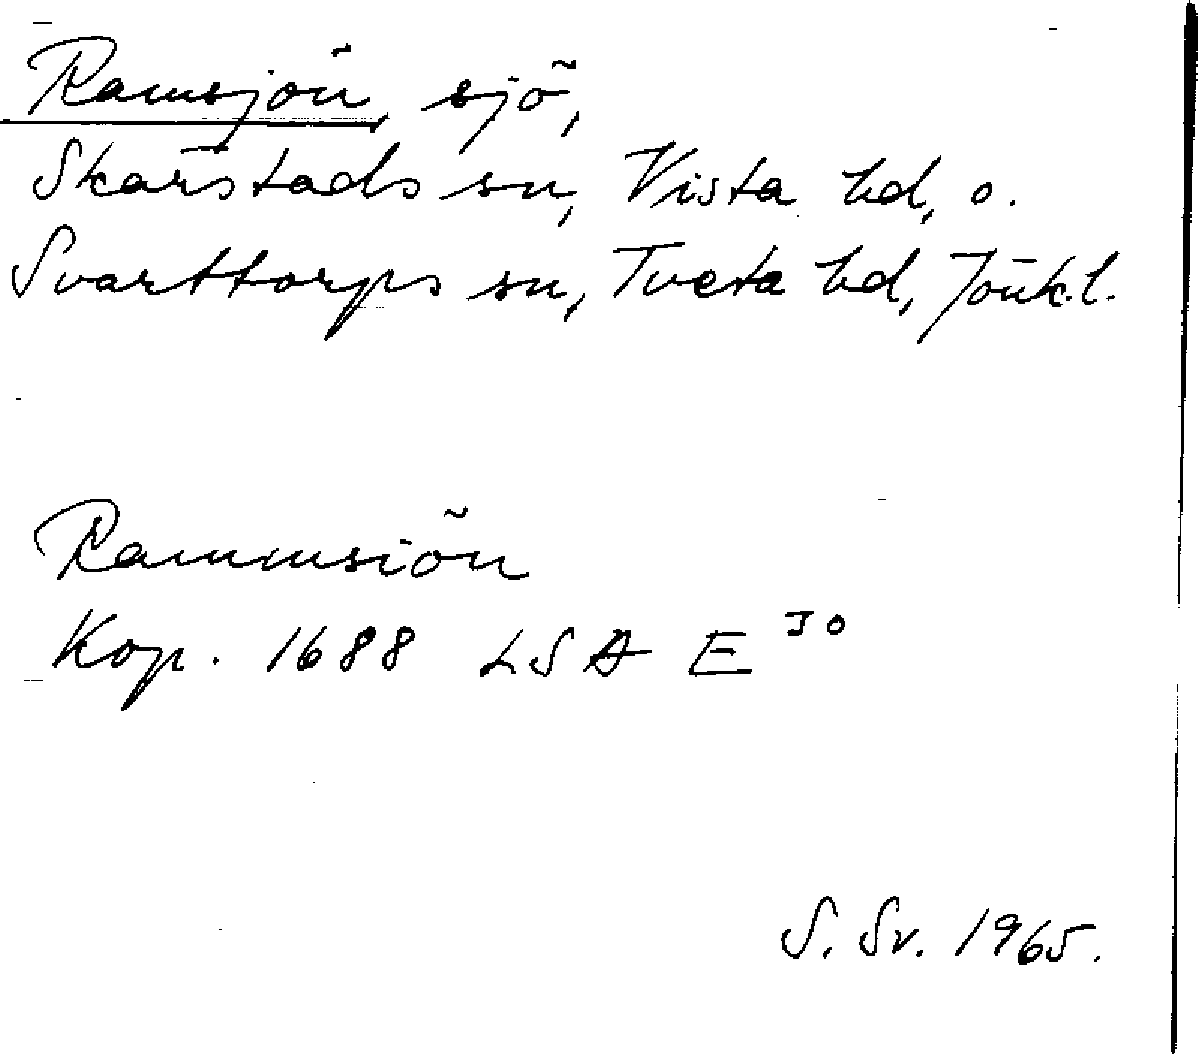 Ramsjön, sjö,
Skärstads sn, Vista hd, o.
Svarttorps sn, Tveta hd, Jönk.l.
Rammsiön
Kop. 1688 LSA E JO
S. Sv. 1965.